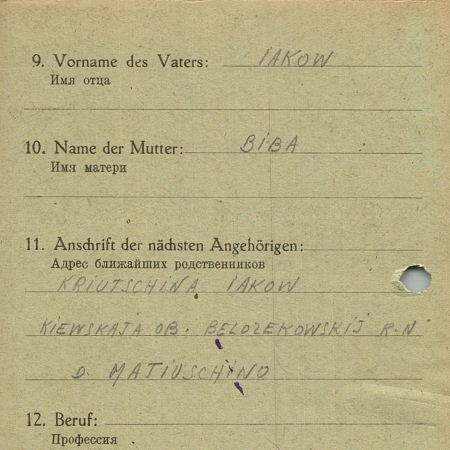 9. Vorname des Vaters: IAKOW
Имя отца
10. Name der Mutter: BIBA
Имя матери
11. Anschrift der nächsten Angehörigen:
Адрес ближайших родственников
KRIUTSCHINA IAKOW
KIEWSKAJA OB. BELOZEKOWSKIJ R-N
D. MATIUSCHINO
12. Beruf:
Профессия